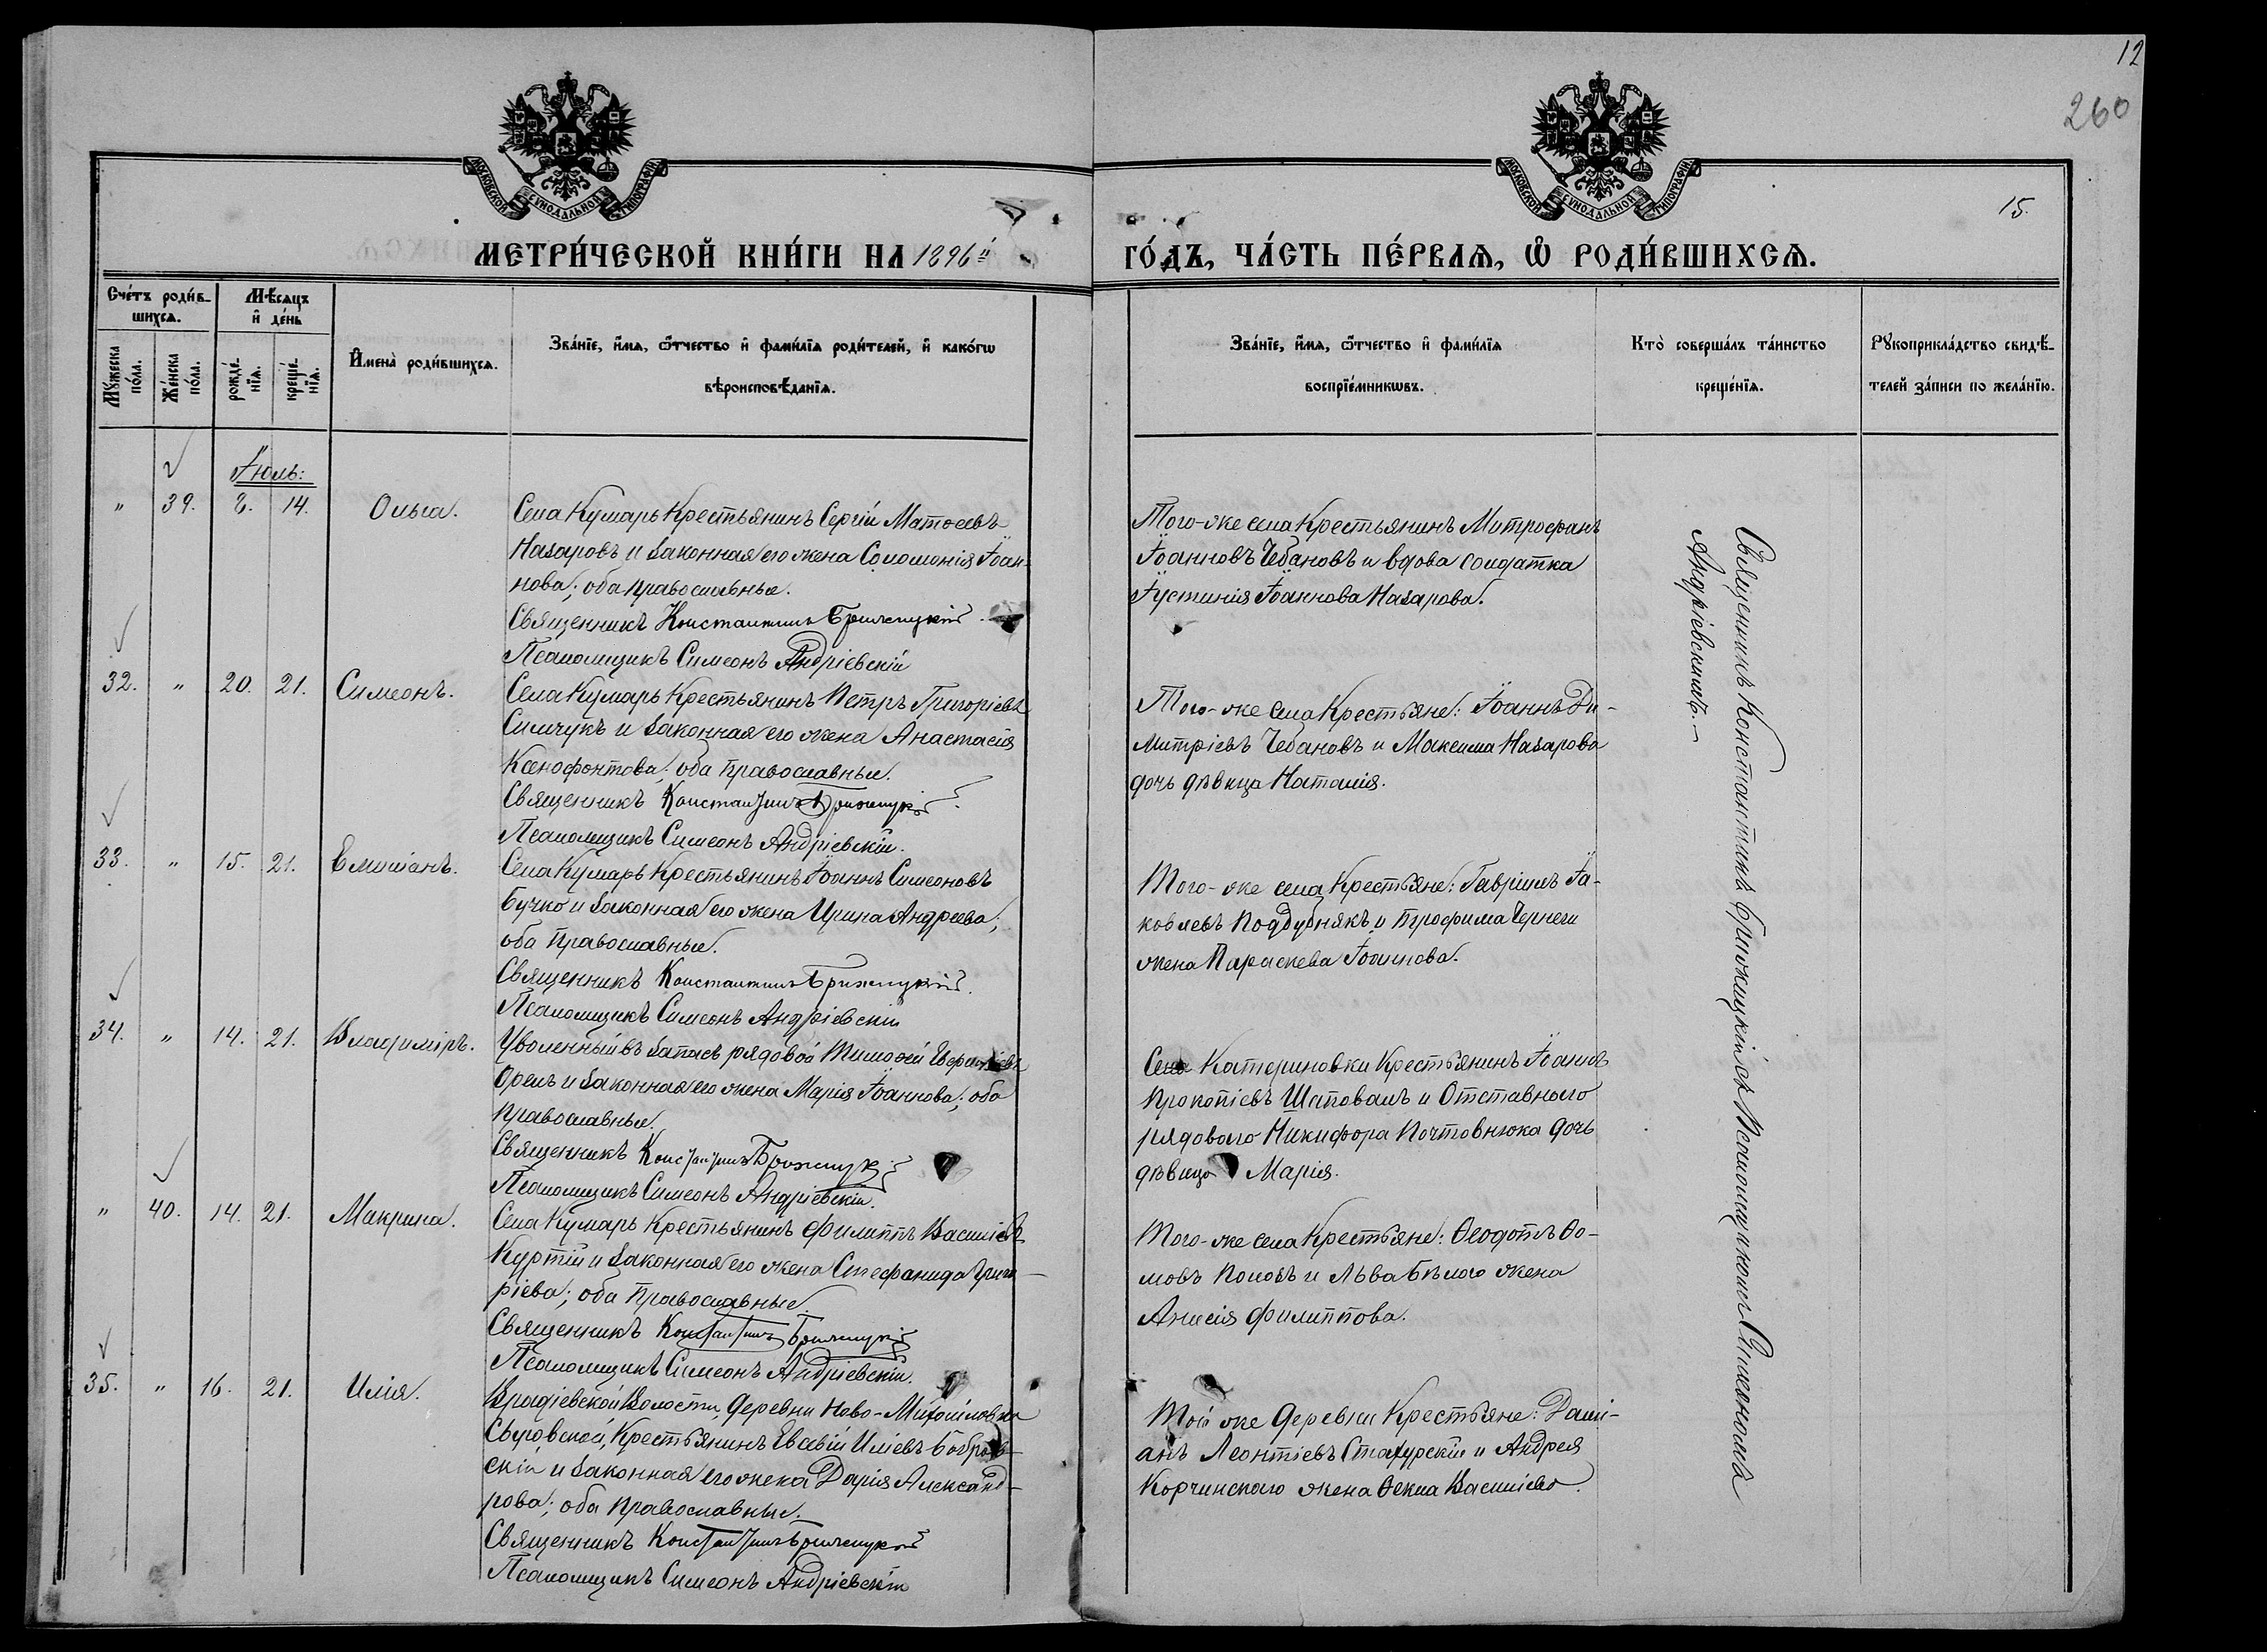 12
260
15.
МОСКОВСКОЙ СѴНОДАЛЬНОЙ ТИПОГРАФІИ
МОСКОВСКОЙ СѴНОДАЛЬНОЙ ТИПОГРАФІИ
МЕТРИ́ЧЕСКОЙ КНИ́ГИ НА 1896й
ГО́ДЪ, ЧА́СТЬ ПЕ́РВАЯ, Ѡ҆ РОДИ́ВШИХСЯ.
Сче́тъ роди́в-
шихся.
Мѣ́сяцъ
и҆ де́нь
Мꙋ́жеска по́ла.
Же́нска по́ла.
рожде́-нїя.
креще́-нїя.
И҆мена̀ роди́вшихся.
Зва́нїе, и҆́мя, ѻ҆́тчество и҆ фами́лїя роди́телей, и҆ како́гѡ
вѣроисповѣ́данїя.
Зва́нїе, и҆́мя, ѻ҆́тчество и҆ фами́лїя
воспрїе́мникѡвъ.
Кто̀ соверша́лъ та́инство
креще́нїя.
Рꙋкоприкла́дство свидѣ́-
телей за́писи по жела́нїю.
Іюль:
" 39. 8. 14. Ольга.
Села Кумарь Крестьянинъ Сергій Матѳеевъ
Назаровъ и законная его жена Соломонія Іоан-
нова; оба православные.
Священникъ Константинъ Брижицкій
Псаломщикъ Симеонъ Андріевскій
Того-же села Крестьянинъ Митрофанъ
Іоанновъ Чебановъ и вдова солдатка
Іустинія Іоаннова Назарова.
32. " 20. 21. Симеонъ.
Села Кумарь Крестьянинъ Петръ Григоріевъ
Симчукъ и законная его жена Анастасія
Ксенофонтова; оба православные.
Священникъ Константинъ Брижицкій
Псаломщикъ Симеонъ Андріевскій.
Того-же села Крестьяне: Іоаннъ Ди-
митріевъ Чебановъ и Максима Назарова
дочь дѣвица Наталія.
33. " 15. 21. Емиліанъ.
Села Кумарь Крестьянинъ Іоаннъ Симеоновъ
Бучко и законная его жена Ирина Андреева;
оба православные.
Священникъ Константинъ Брижицкій.
Псаломщикъ Симеонъ Андріевскій
Того-же села Крестьяне: Гавріилъ Іа-
ковлевъ Поддубнякъ и Трофима Чернеги
жена Параскева Іоаннова.
34. " 14. 21. Владиміръ.
Уволенный въ запасъ рядовой Тимоѳей
Орелъ и законная его жена Марія Іоаннова; оба
православные.
Священникъ Константинъ Брижицкій
Псаломщикъ Симеонъ Андріевскій.
Села Катериновки Крестьянинъ Іоаннъ
Прокопіевъ Шаповалъ и Отставного
рядового Никифора Почтовнюка дочь
дѣвица Марія.
" 40. 14. 21. Макрина.
Села Кумарь Крестьянинъ Филиппъ Василіевъ
Куртій и законная его жена Стефанида Григо-
ріева; оба православные.
Священникъ Константинъ Брижицкій
Псаломщикъ Симеонъ Андріевскій.
Того-же села Крестьяне: Ѳеодотъ Ѳо-
мовъ Поповъ и Льва Бѣлого жена
Анисія Филиппова.
35. " 16. 21. Илія.
Врадіевской Волости, деревни Ново-Михайловки
Свуровской, Крестьянинъ Евсевій Иліевъ Бобров-
скій и законная его жена Дарія Александ-
рова; оба православные.
Священникъ Константинъ Брижицкій
Псаломщикъ Симеонъ Андріевскій
Той же деревни Крестьяне: Дамі-
анъ Леонтіевъ Стахурскій и Андрея
Корчинского жена Ѳекла Василіева.
Священникъ Константинъ Брижицкій съ Псаломщикомъ Симеономъ
Андріевскимъ.